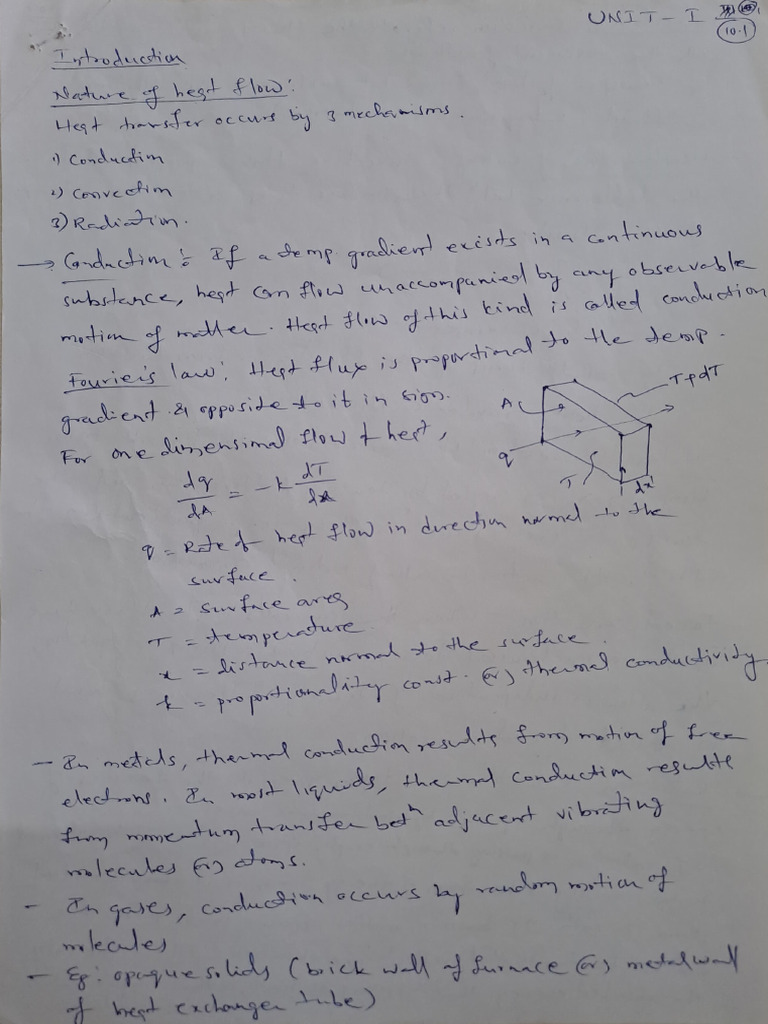 UNIT - I
10.1
Introduction
Nature of heat flow:
Heat transfer occurs by 3 mechanisms.
1) Conduction
2) Convection
3) Radiation.
→ Conduction: If a temp gradient exists in a continuous
substance, heat can flow unaccompanied by any observable
motion of matter. Heat flow of this kind is called conduction
Fourier's law: Heat flux is proportional to the temp.
gradient & opposite to it in sign.
For one dimensional flow of heat,
A
T+dT
q
T
dx
dq/dA = -k dT/dx
q = Rate of heat flow in direction normal to the
surface.
A = surface area
T = temperature
x = distance normal to the surface.
k = proportionality const. (or) thermal conductivity.
- In metals, thermal conduction results from motion of free
electrons. In most liquids, thermal conduction results
from momentum transfer betn adjacent vibrating
molecules (or) atoms.
- In gases, conduction occurs by random motion of
molecules
- Eg: opaque solids (brick wall of furnace (or) metal wall
of heat exchanger tube)